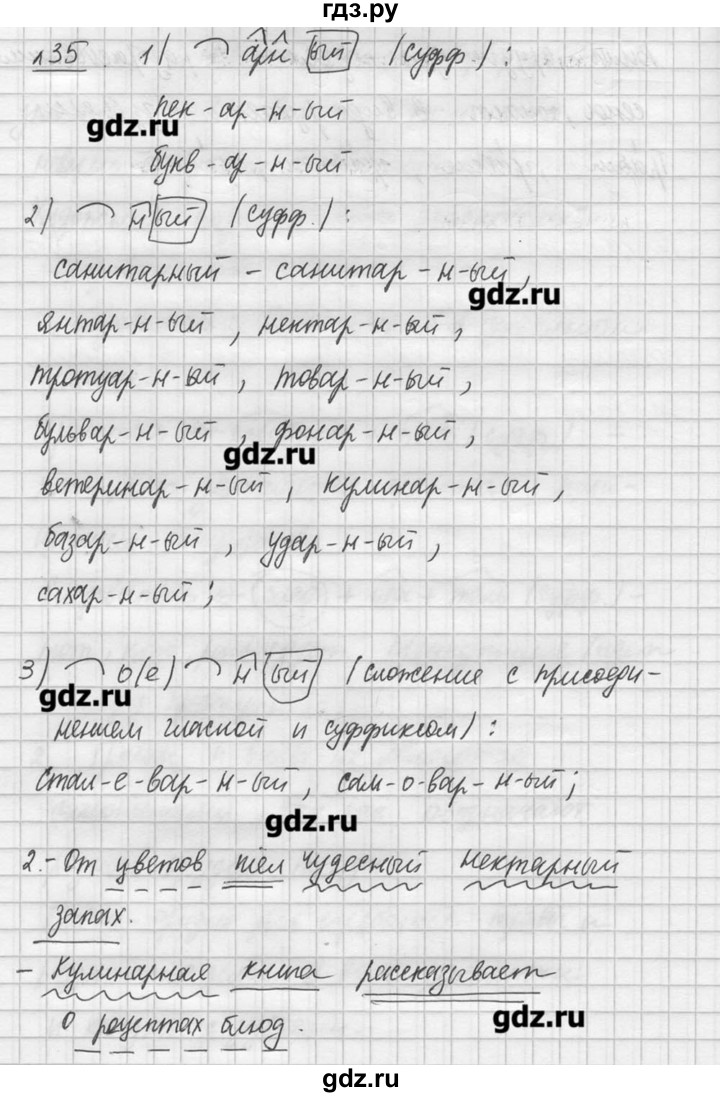 гдз.ру
135 1) арн ый (суфф.):
пек-ар-н-ый
gdz.ru
букв-ар-н-ый
2) н ый (суфф.):
санитарный - санитар-н-ый,
gdz.ru
янтар-н-ый, нектар-н-ый,
тротуар-н-ый, товар-н-ый,
бульвар-н-ый, фонар-н-ый,
gdz.ru
ветеринар-н-ый, кулинар-н-ый,
базар-н-ый, удар-н-ый,
сахар-н-ый;
3) о(е) н ый (сложение с присоеди-
gdz.ru
нением гласной и суффиксом):
стал-е-вар-н-ый, сам-о-вар-н-ый;
gdz.ru
2.- От цветов шёл чудесный нектарный
запах.
- Кулинарная книга рассказывает
о рецептах блюд.
gdz.ru
gdz.ru